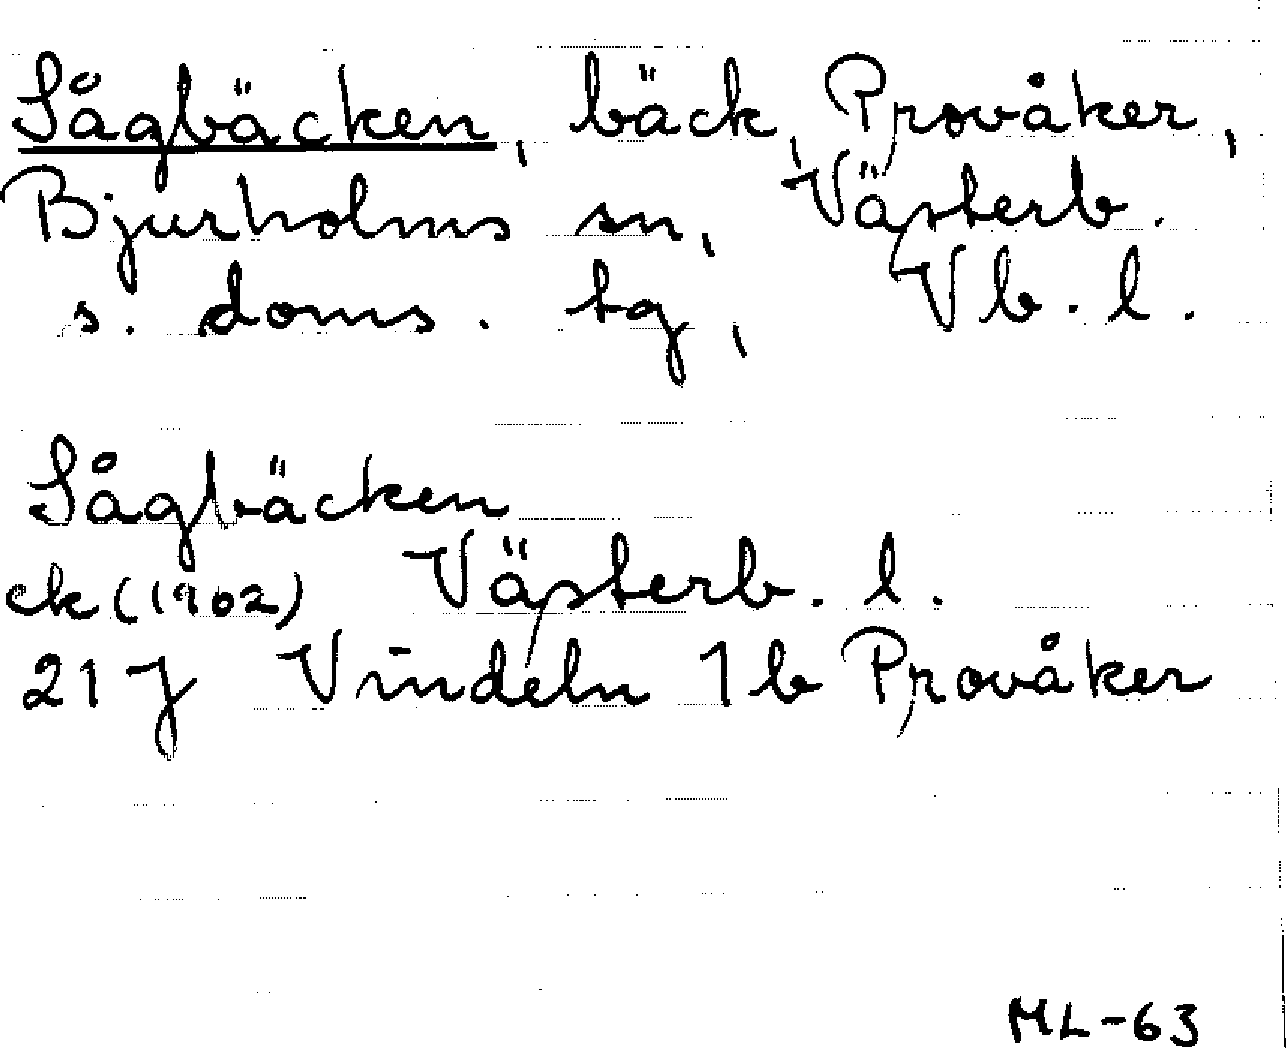 Sågbäcken, bäck, Provåker,
Bjurholms sn, Västerb.
s. doms. tg, Vb. l.
Sågbäcken
ek (1902) Västerb. l.
21 J Vindeln 1 b Provåker
ML-63